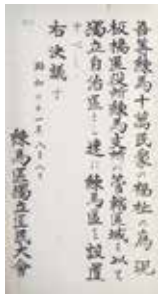 吾等練馬十萬民衆ノ福祉ノ為現
板橋區役所練馬支所ノ管轄區域ヲ以テ
獨立自治區トシ速ニ練馬區ヲ設置
右決議ス
昭和二十一年八月八日
練馬區獨立區民大會